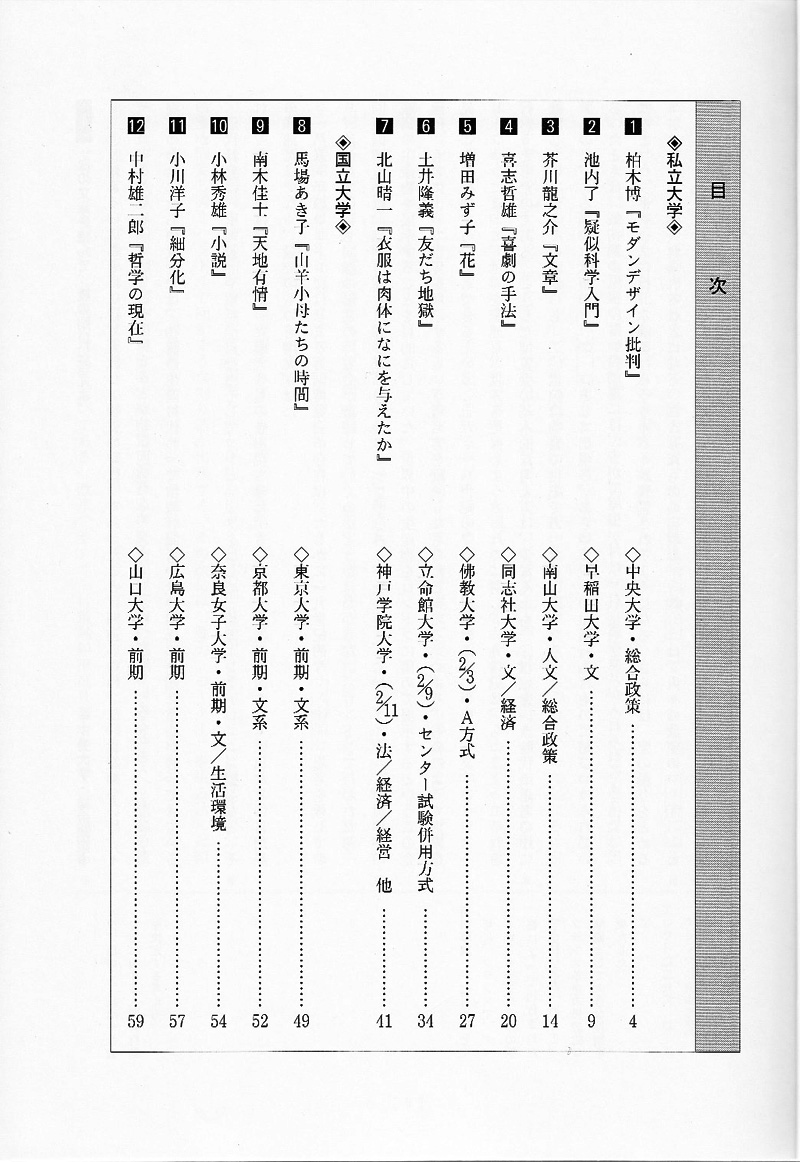 目次
◈私立大学◈
1 柏木博『モダンデザイン批判』 ◇中央大学・総合政策 4
2 池内了『疑似科学入門』 ◇早稲田大学・文 9
3 芥川龍之介『文章』 ◇南山大学・人文／総合政策 14
4 喜志哲雄『喜劇の手法』 ◇同志社大学・文／経済 20
5 増田みず子『花』 ◇佛教大学・(2/3)・A方式 27
6 土井隆義『友だち地獄』 ◇立命館大学・(2/9)・センター試験併用方式 34
7 北山晴一『衣服は肉体になにを与えたか』 ◇神戸学院大学・(2/11)・法／経済／経営 他 41
◈国立大学◈
8 馬場あき子『山羊小母たちの時間』 ◇東京大学・前期・文系 49
9 南木佳士『天地有情』 ◇京都大学・前期・文系 52
10 小林秀雄『小説』 ◇奈良女子大学・前期・文／生活環境 54
11 小川洋子『細分化』 ◇広島大学・前期 57
12 中村雄二郎『哲学の現在』 ◇山口大学・前期 59